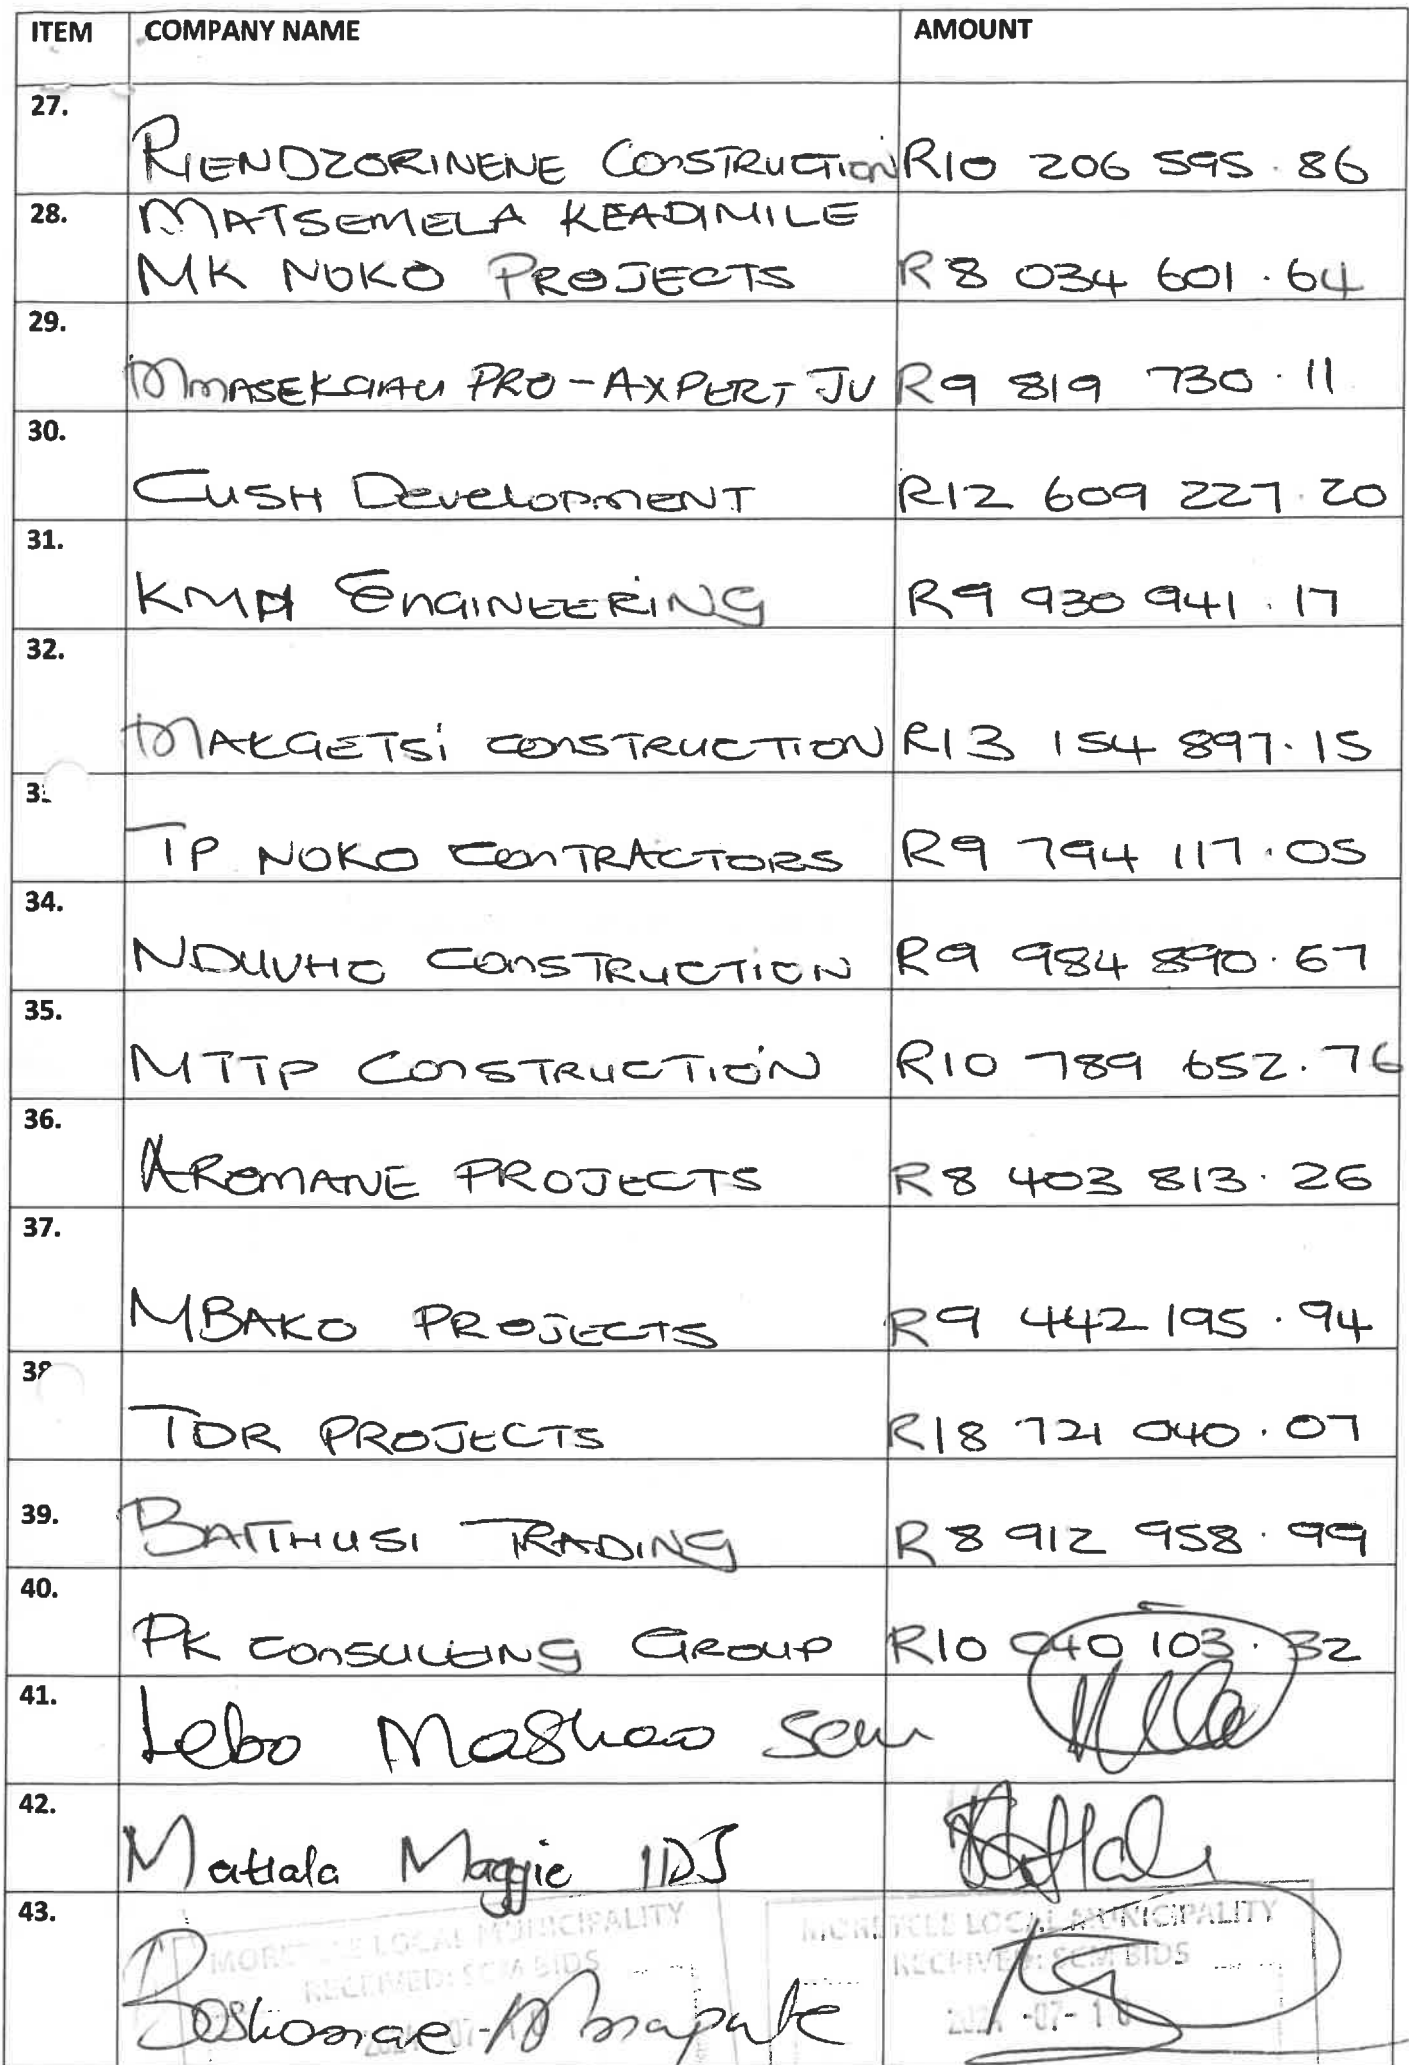 ITEM COMPANY NAME AMOUNT
27.
RIENDZORINENE CONSTRUCTION R10 206 595.86
28. MATSEMELA KEADIMILE
MK NOKO PROJECTS R8 034 601.64
29.
PRO-AXPERT JV R9 819 730.11
30.
CUSH DEVELOPMENT R12 609 227.20
31.
KMN ENGINEERING R9 930 941.17
32.
MAKGETSI CONSTRUCTION R13 154 897.15
TP NOKO CONTRACTORS R9 794 117.05
34.
NDUVHO CONSTRUCTION R9 984 890.67
35.
MTTP CONSTRUCTION R10 789 652.76
36.
AROMANE PROJECTS R8 403 813.26
37.
MBAKO PROJECTS R9 442 195.94
TDR PROJECTS R18 721 040.07
39.
BATTHUSI TRADING R8 912 958.99
40.
PK CONSULTING GROUP R10 040 103.32
41.
Lebo Mashao
42.
Matlala Maggie
43.
LOCAL MUNICIPALITY LOCAL MUNICIPALITY
RECEIVED: SCM BIDS RECEIVED: SCM BIDS